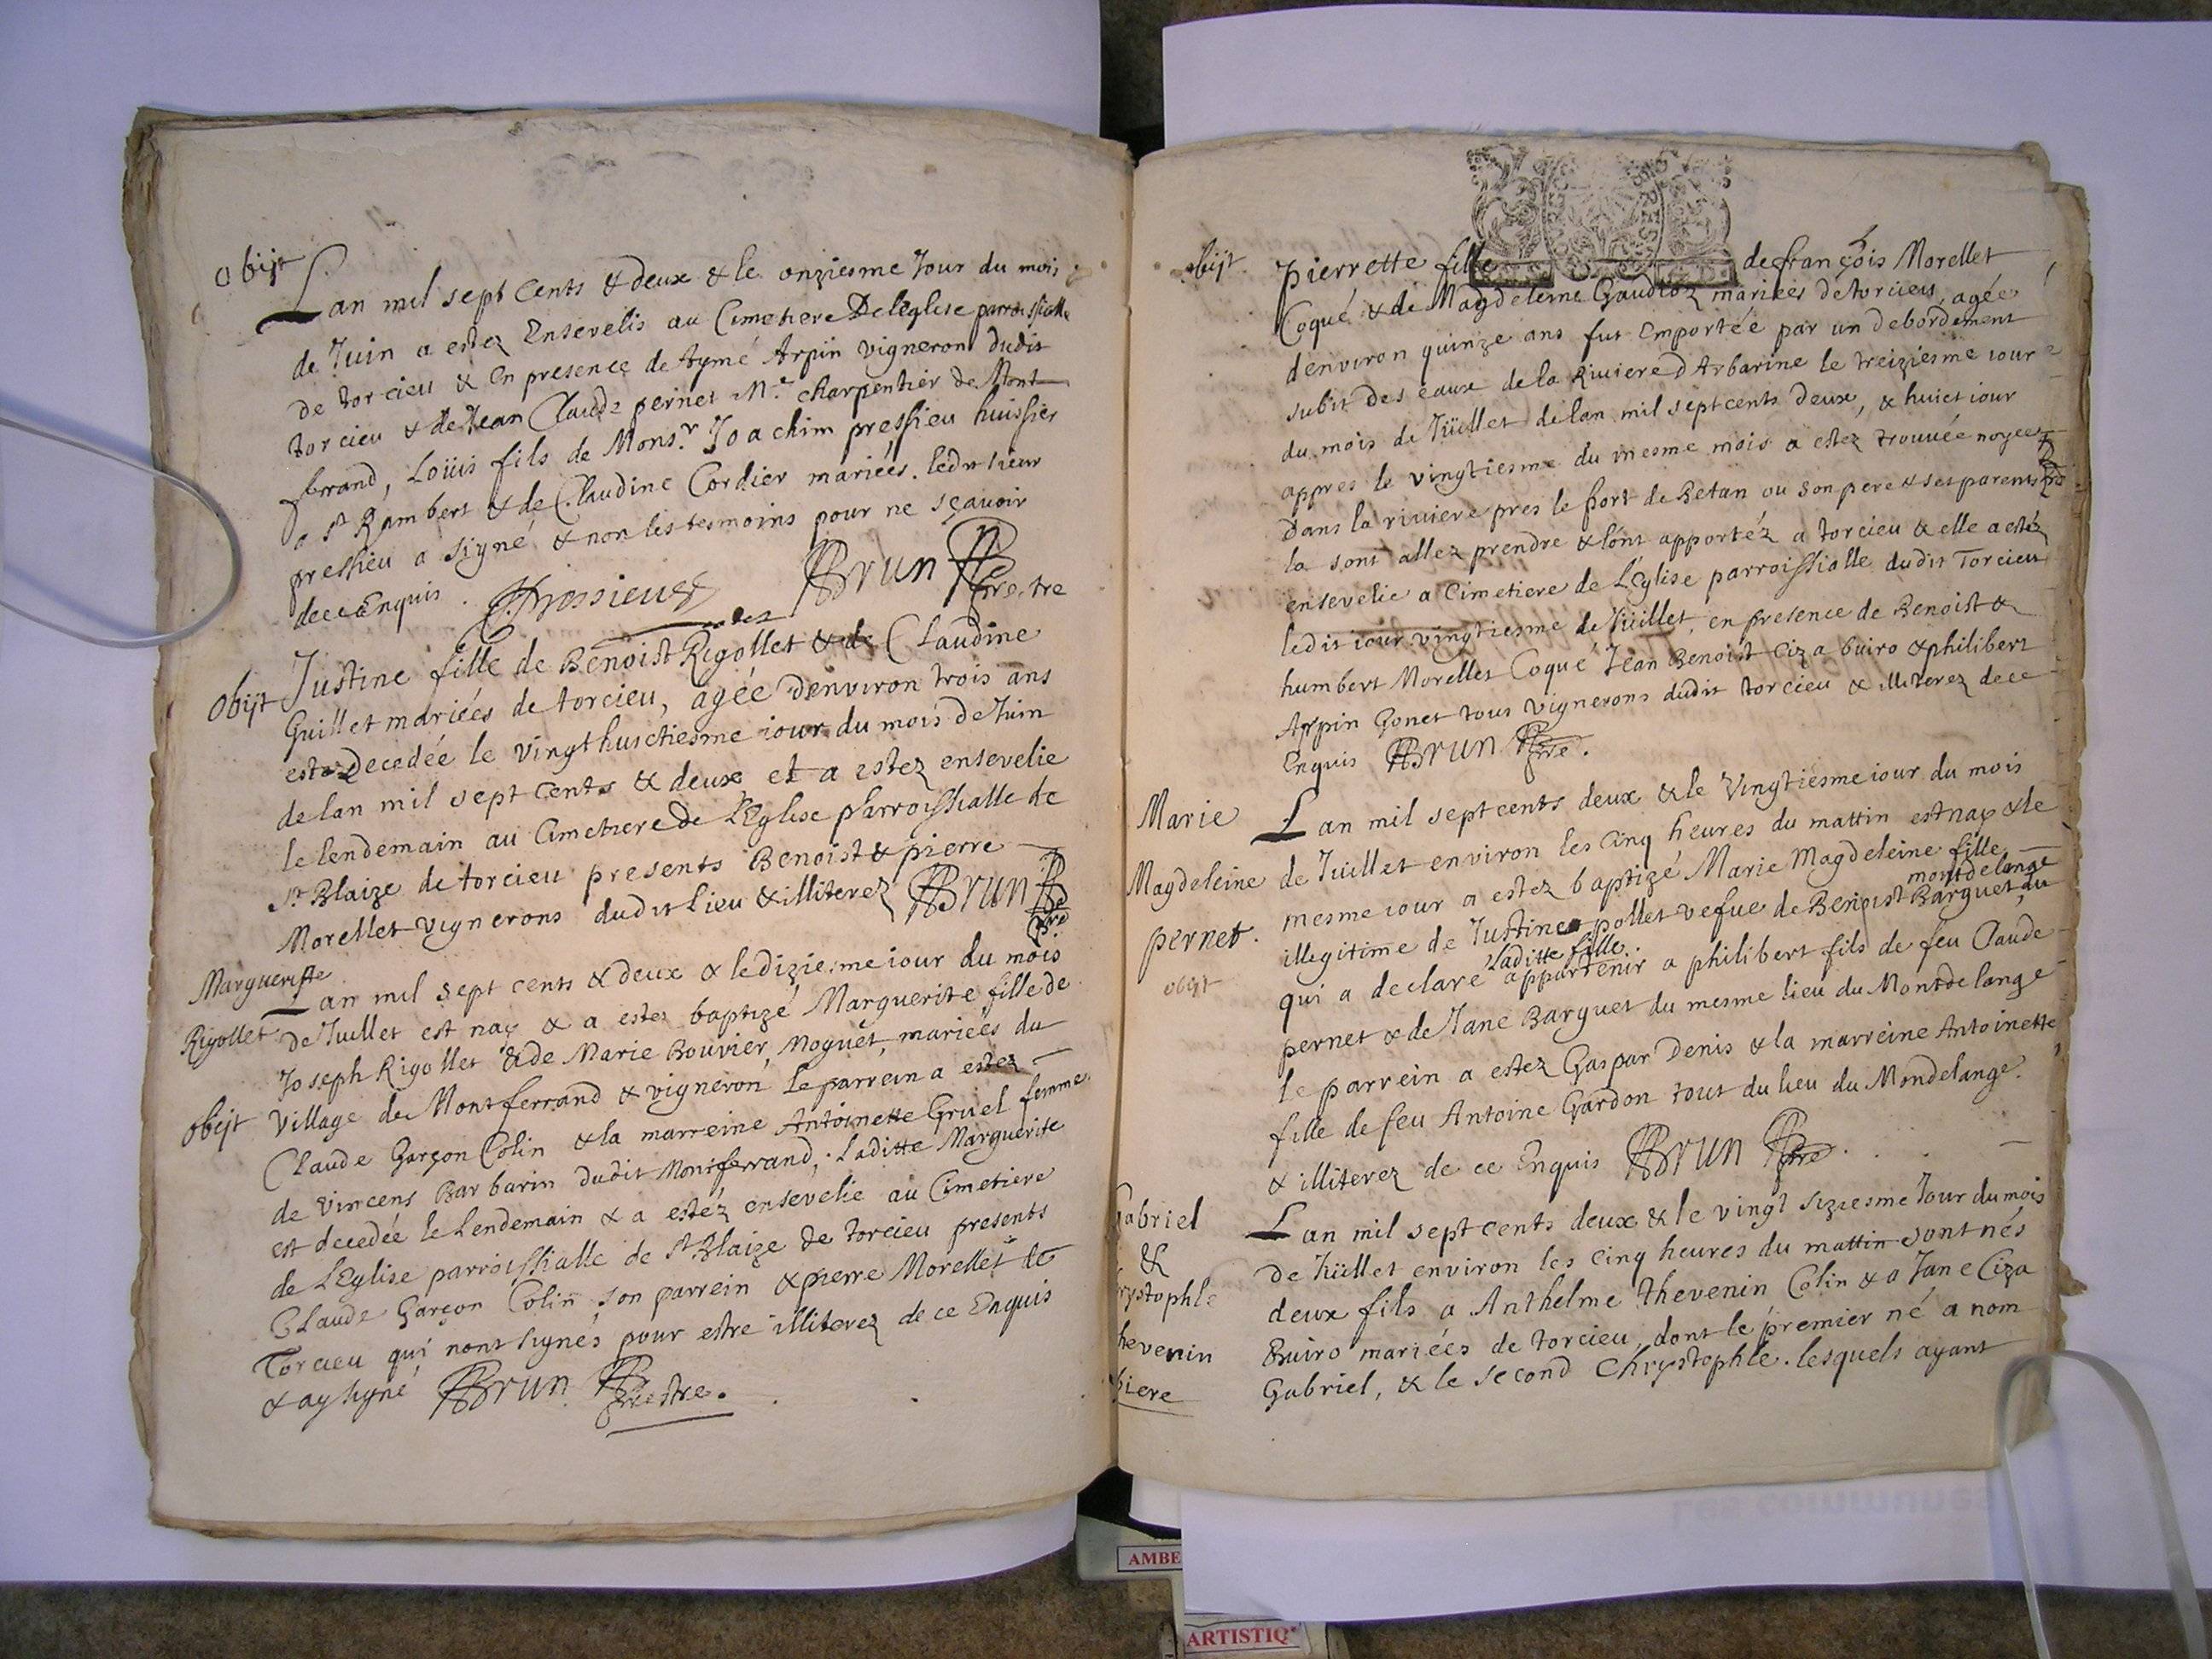 obijt
Lan mil sept cents & deux & le onziesme Jour du mois
de Juin a estez Ensevelis au Cimetiere De leglise parroissialle
de torcieu & en presence de Aymé Arpin vigneron dudit
torcieu & de Jean Claude pernet Mre charpentier de Mont-
ferrand, Loüis fils de Monsr Joachim pressieu huissier
a st Rambert & de Claudine Cordier mariées. ledit sieur
pressieu a signé & non les tesmoins pour ne sçavoir
dece enquis. BRUN prestre
obijt
Justine fille de Benoist Rigollet & de Claudine
Guillet mariées de torcieu, agée denviron trois ans
est decedée le vingt huictiesme iour du mois de Juin
de lan mil sept cents & deux et a estez ensevelie
le lendemain au Cimetiere de L'Eglise parroissialle de
st Blaize de torcieu presents Benoist & pierre
Morellet vignerons dudit lieu & illiterez BRUN pre
Marguerite
Rigollet
Lan mil sept cents & deux & le diziesme iour du mois
de Juillet est nay & a estez baptizé Marguerite fille de
Joseph Rigollet & de Marie Bouvier, Moguet, mariées du
obijt
village de Montferrand & vigneron le parrein a estez
Claude Garçon Colin & la marreine Antoinette Gruel femme
de vincens Barbarin dudit Montferrand, . Laditte Marguerite
est decedée le Lendemain & a estéz ensevelie au Cimetiere
de L'Eglise parroissialle de st Blaize de torcieu presents
Claude Garçon Colin son parrein & pierre Morellet de
Torcieu qui nont signés pour estre illiterez de ce Enquis
& ay signé BRUN prestre.
obijt
pierrette fille de françois Morellet
Coqué & de Magdeleine Gaudioz mariées de torcieu, agée
denviron quinze ans fut Emportée par un debordement
subit des eaux de la Riviere d'Arbarine le treiziesme iour
du mois de Jüillet de lan mil sept cents deux, & huict iour
appres le vingtiesme du mesme mois a estez trouvée noyee
Dans la riviere pres le port de Betan ou son pere & ses parents
la sont allez prendre & lont apportéz a torcieu & elle a estéz
ensevelie a Cimetiere de L'Eglise parroissialle dudit Torcieu
ledit iour vingtiesme de Jüillet, en presence de Benoist &
humbert Morellet Coqué Jean Benoist Ciza buiro & philibert
Arpin Gonet tous vignerons dudit torcieu & illiterez de ce
Enquis BRUN pre.
Marie
Magdeleine
pernet.
obijt
Lan mil sept cents deux & le Vingtiesme iour du mois
de Juillet environ les Cinq heures du mattin est nay & le
mesme iour a estez baptizé Marie Magdeleine fille
illegitime de Justine pollet vefue de Benoist Barguet, du montdelange
qui a declaré laditte fille. appartenir a philibert fils de feu Claude
pernet & de Jane Barguet du mesme lieu du Montdelange
le parrein a estez Gaspar Denis & la marreine Antoinette
fille de feu Antoine Gardon tout du lieu du Mondelange.
& illiterez de ce Enquis BRUN pre.
Gabriel
&
rystophle
hevenin
biere
Lan mil sept cents deux & le vingt siziesme Jour du mois
de Jüillet environ les cinq heures du mattin sont nés
deux fils a Anthelme thevenin Colin & a Jane Ciza
Buiro mariées de torcieu, dont le premier né a nom
Gabriel, & le second Chrystophle. lesquels ayant
AMBE
ARTISTIQ